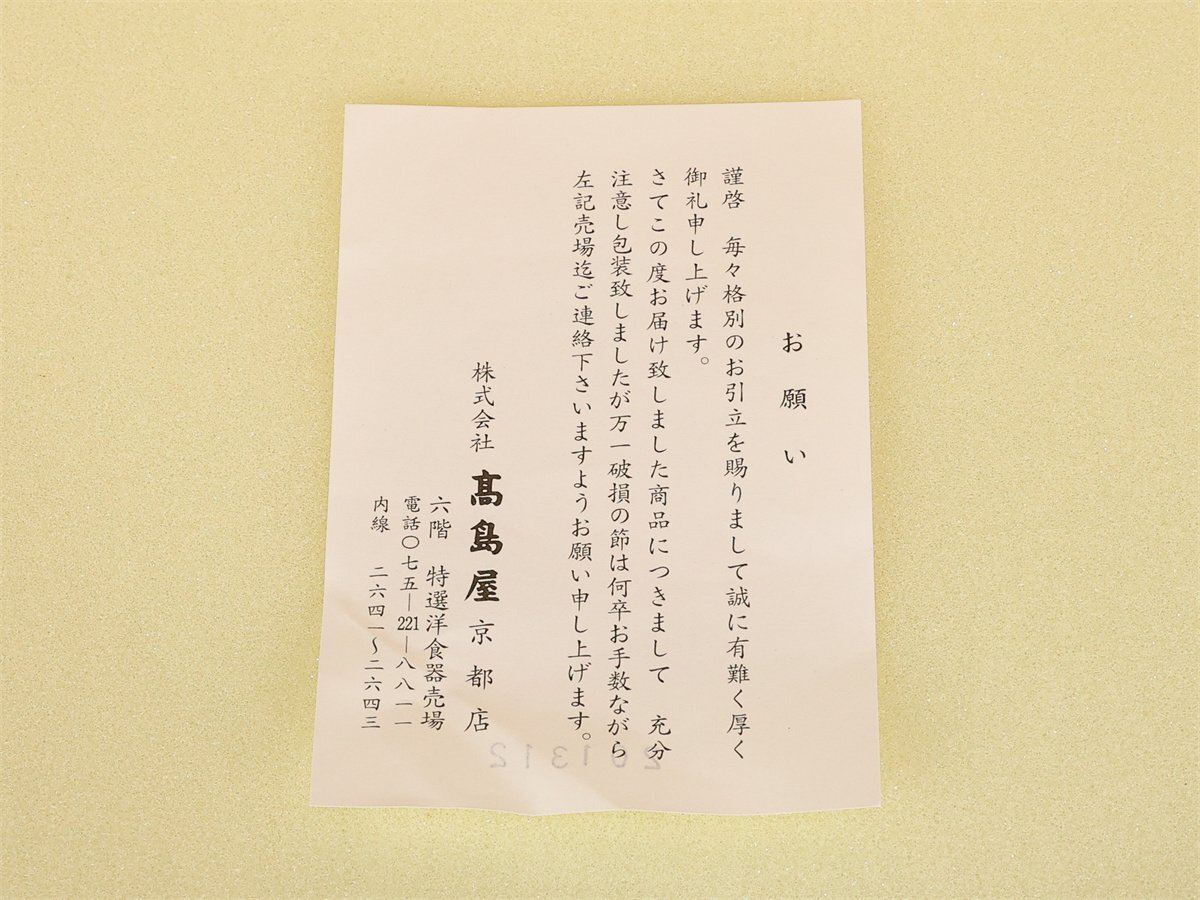 お願い
謹啓　毎々格別のお引立を賜りまして誠に有難く厚く
御礼申し上げます。
さてこの度お届け致しました商品につきまして　充分
注意し包装致しましたが万一破損の節は何卒お手数ながら
左記売場迄ご連絡下さいますようお願い申し上げます。
株式会社 髙島屋 京都店
六階　特選洋食器売場
電話〇七五―221―八八一一
内線　二六四一〜二六四三
201312